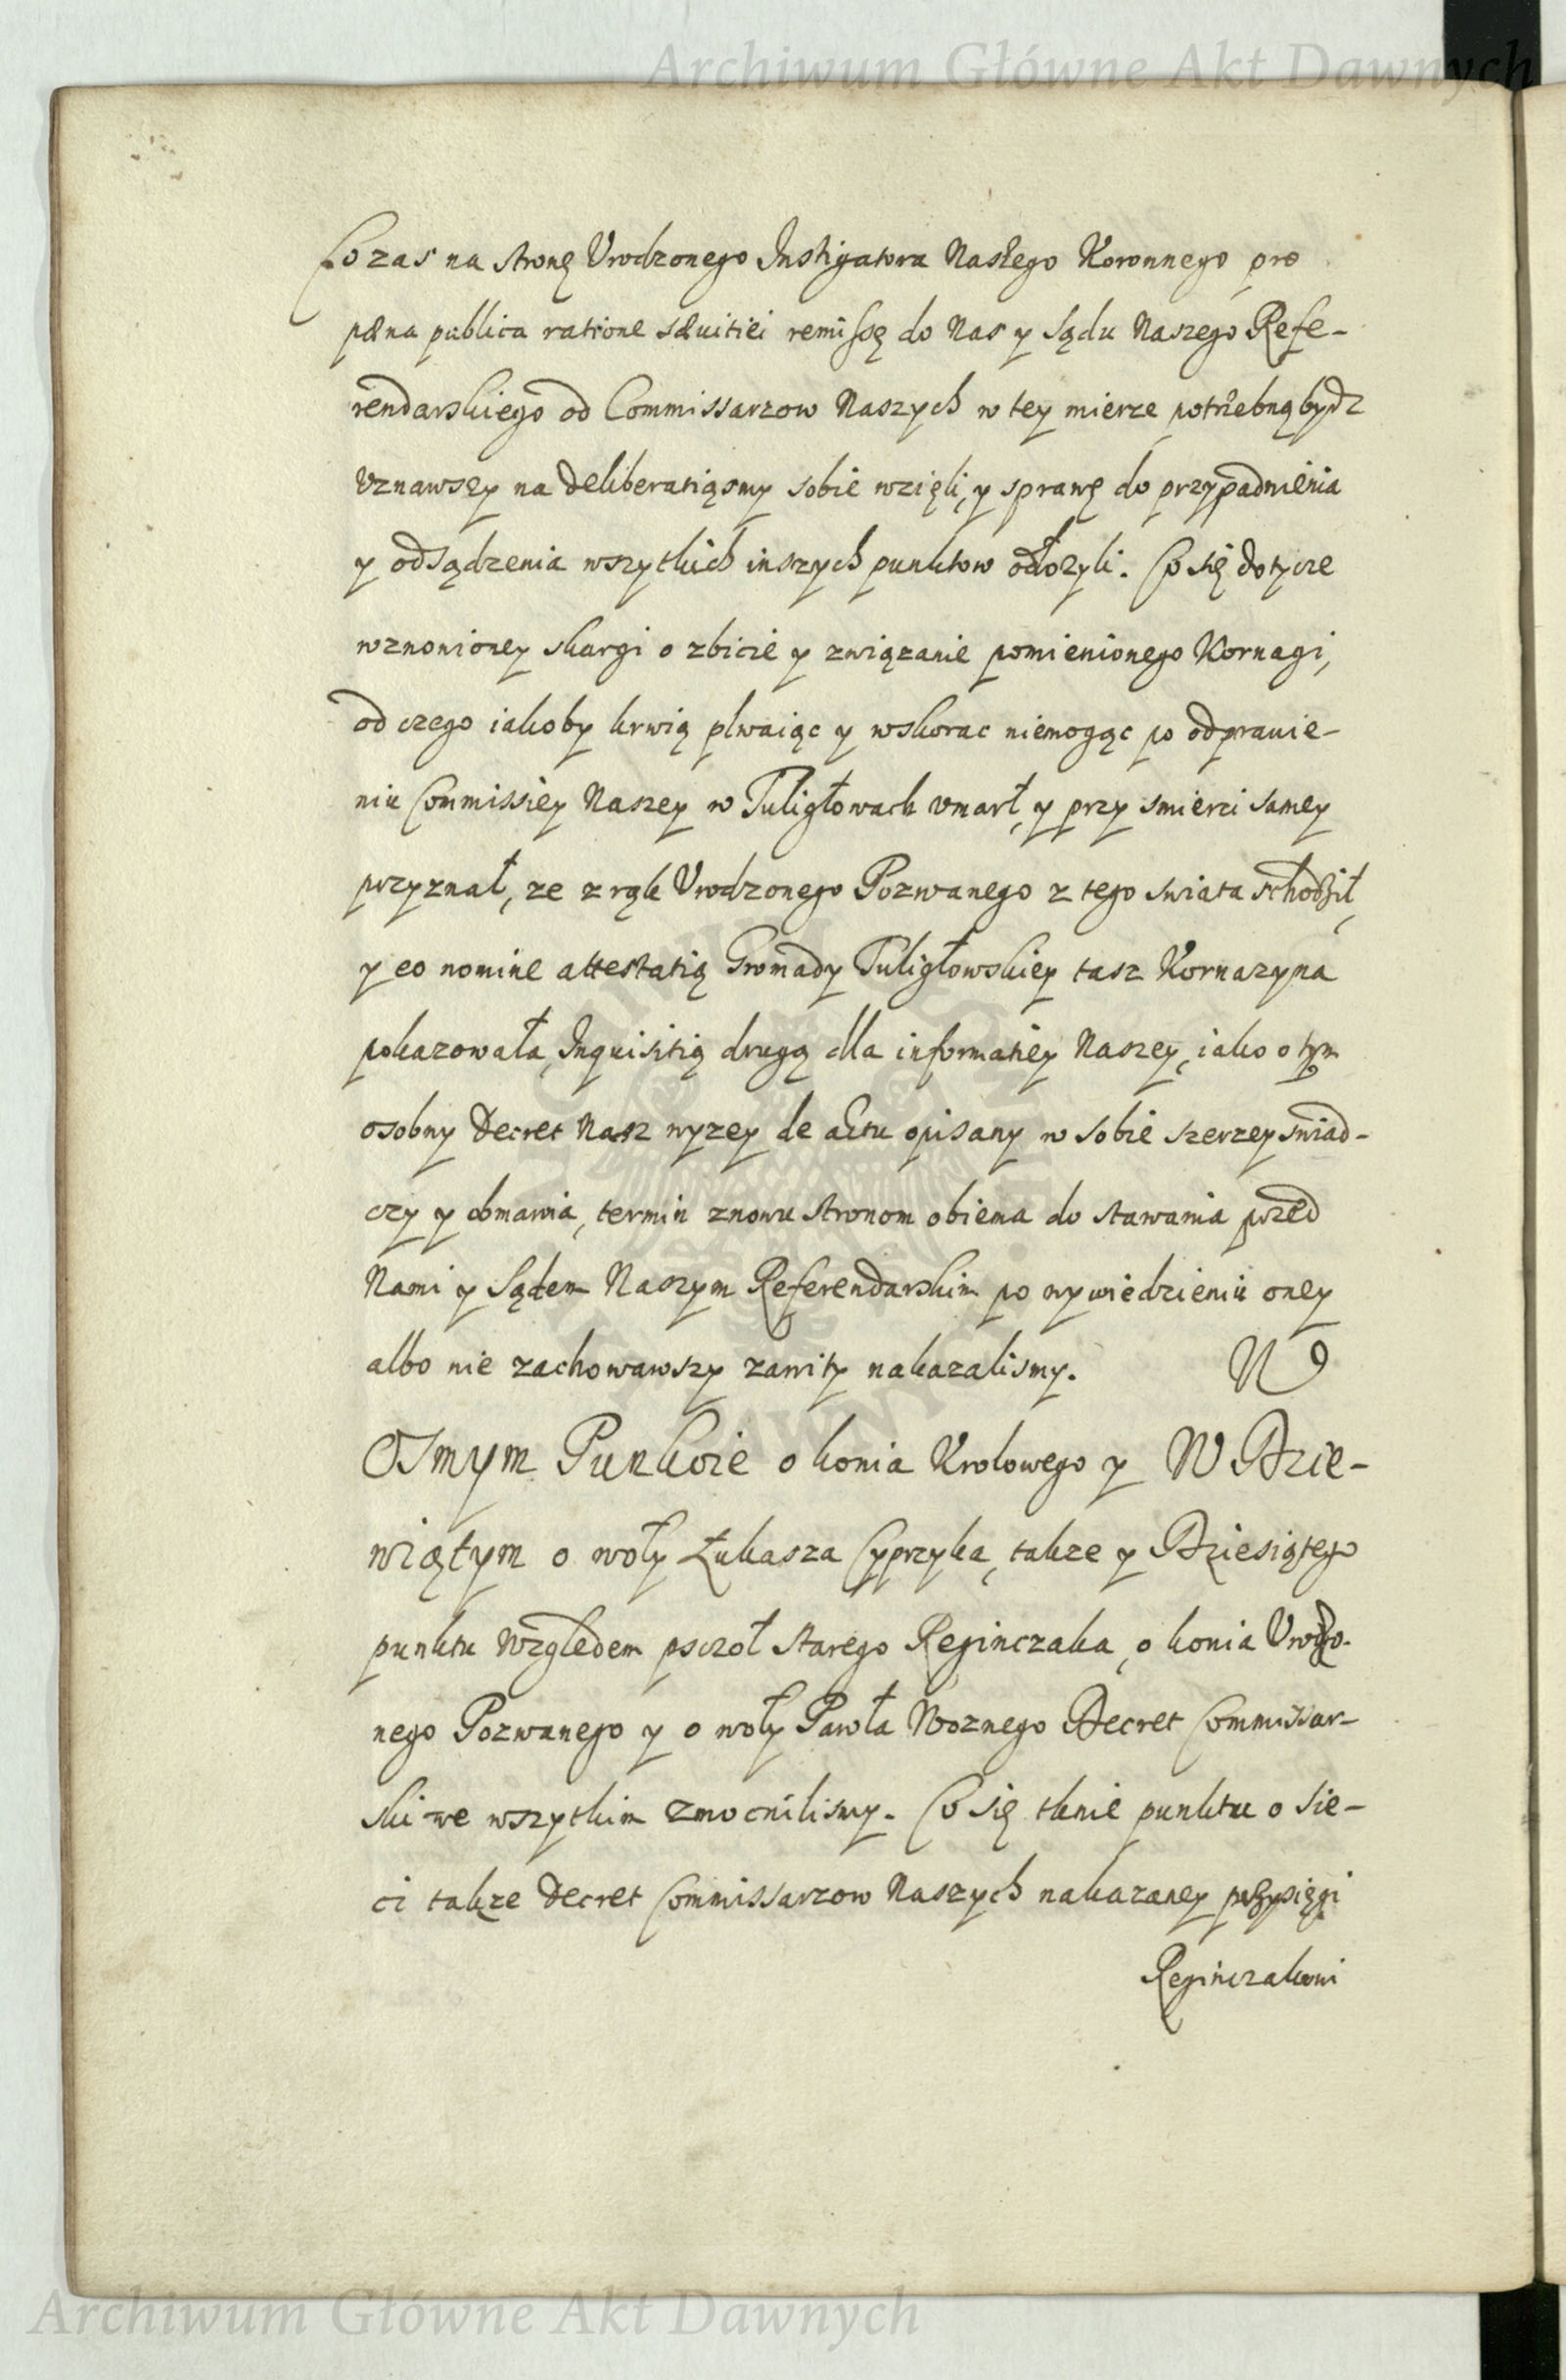 Archiwum Główne Akt Dawnych
Co zas na stronę Vrodzonego Instigatora Naszego Koronnego, pro
pæna publica ratione sæuitiei remissę do Nas y Sądu Naszego Refe-
rendarskiego od Commissarzow Naszych w tey mierze potrzebną bydz
vznawszy na deliberatiąsmy sobie wzięli, y sprawę do przypadnienia
y odsądzenia wszytkich inszych punktow odłozyli. Co się dotycze
wznowioney skargi o zbicie y związanie pomienionego Kornagi,
od czego iakoby krwią plwaiąc y wskorac niemogąc po odprawie-
niu Commissiey Naszey w Tuligłowach vmarł, y przy smierci samey
przyznał, ze z rąk Vrodzonego Pozwanego z tego swiata schodził,
y eo nomine attestatią Gromady Tuligłowskiey tasz Kornazyna
pokazowała, Inquisitią drugą dla informatiey Naszey, iako o tym
osobny Decret Nasz wyzey de actu opisany w sobie szerzey swiad-
czy y obmawia, termin znowu stronom obiema do stawania przed
Nami y Sądem Naszym Referendarskim po wywiedzieniu oney
albo nie zachowawszy zawity nakazalismy. W
Osmym Punkcie o konia Krolowego y W Dzie-
wiątym o woły Łukasza Cyprzyka, takze y Dziesiątego
punktu względem pszczoł starego Reginczaka, o konia Vrodzo-
nego Pozwanego y o woły Pawła Woznego Decret Commissar-
ski we wszytkim zmocnilismy. Co się tknie punktu o sie-
ci takze Decret Commissarzow Naszych nakazaney przysięgi
Reginczakowi
Archiwum Główne Akt Dawnych